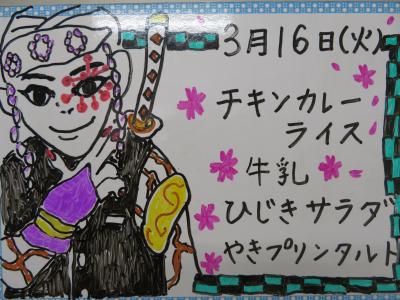 3月16日(火)
チキンカレー
ライス
牛乳
ひじきサラダ
やきプリンタルト